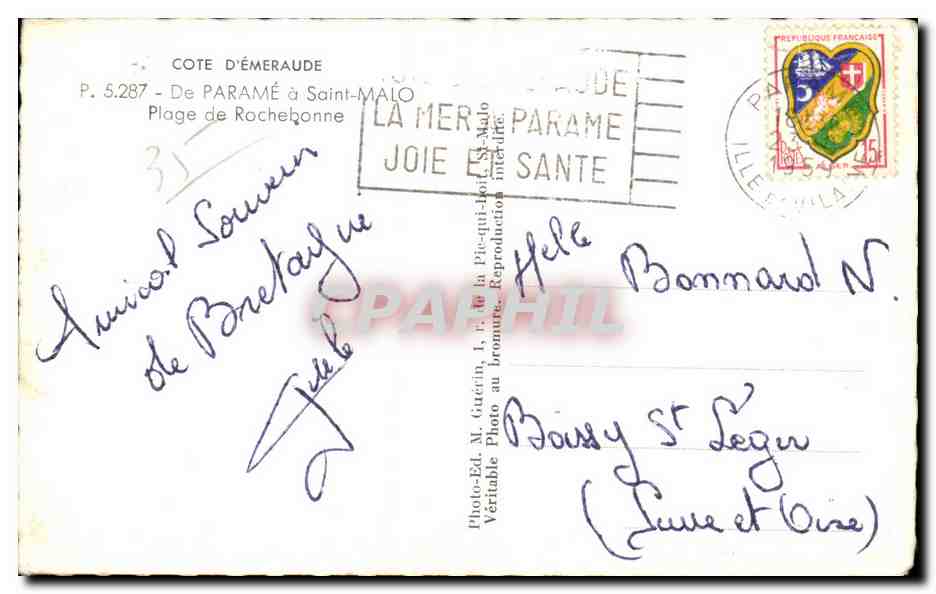 COTE D'ÉMERAUDE
P. 5.287 - De PARAMÉ à Saint-MALO
Plage de Rochebonne
35
LA MER PARAME
JOIE ET SANTE
REPUBLIQUE FRANÇAISE
15F
ALGER
ILLE ET VILAINE
Amical Souvenir
de Bretagne
Photo-Ed. M. Guérin, 1, r. de la Pie-qui-boit, St-Malo
Véritable Photo au bromure. Reproduction interdite.
Melle Bonnard N.
Boissy St Léger
(Seine et Oise)
CPAPHIL